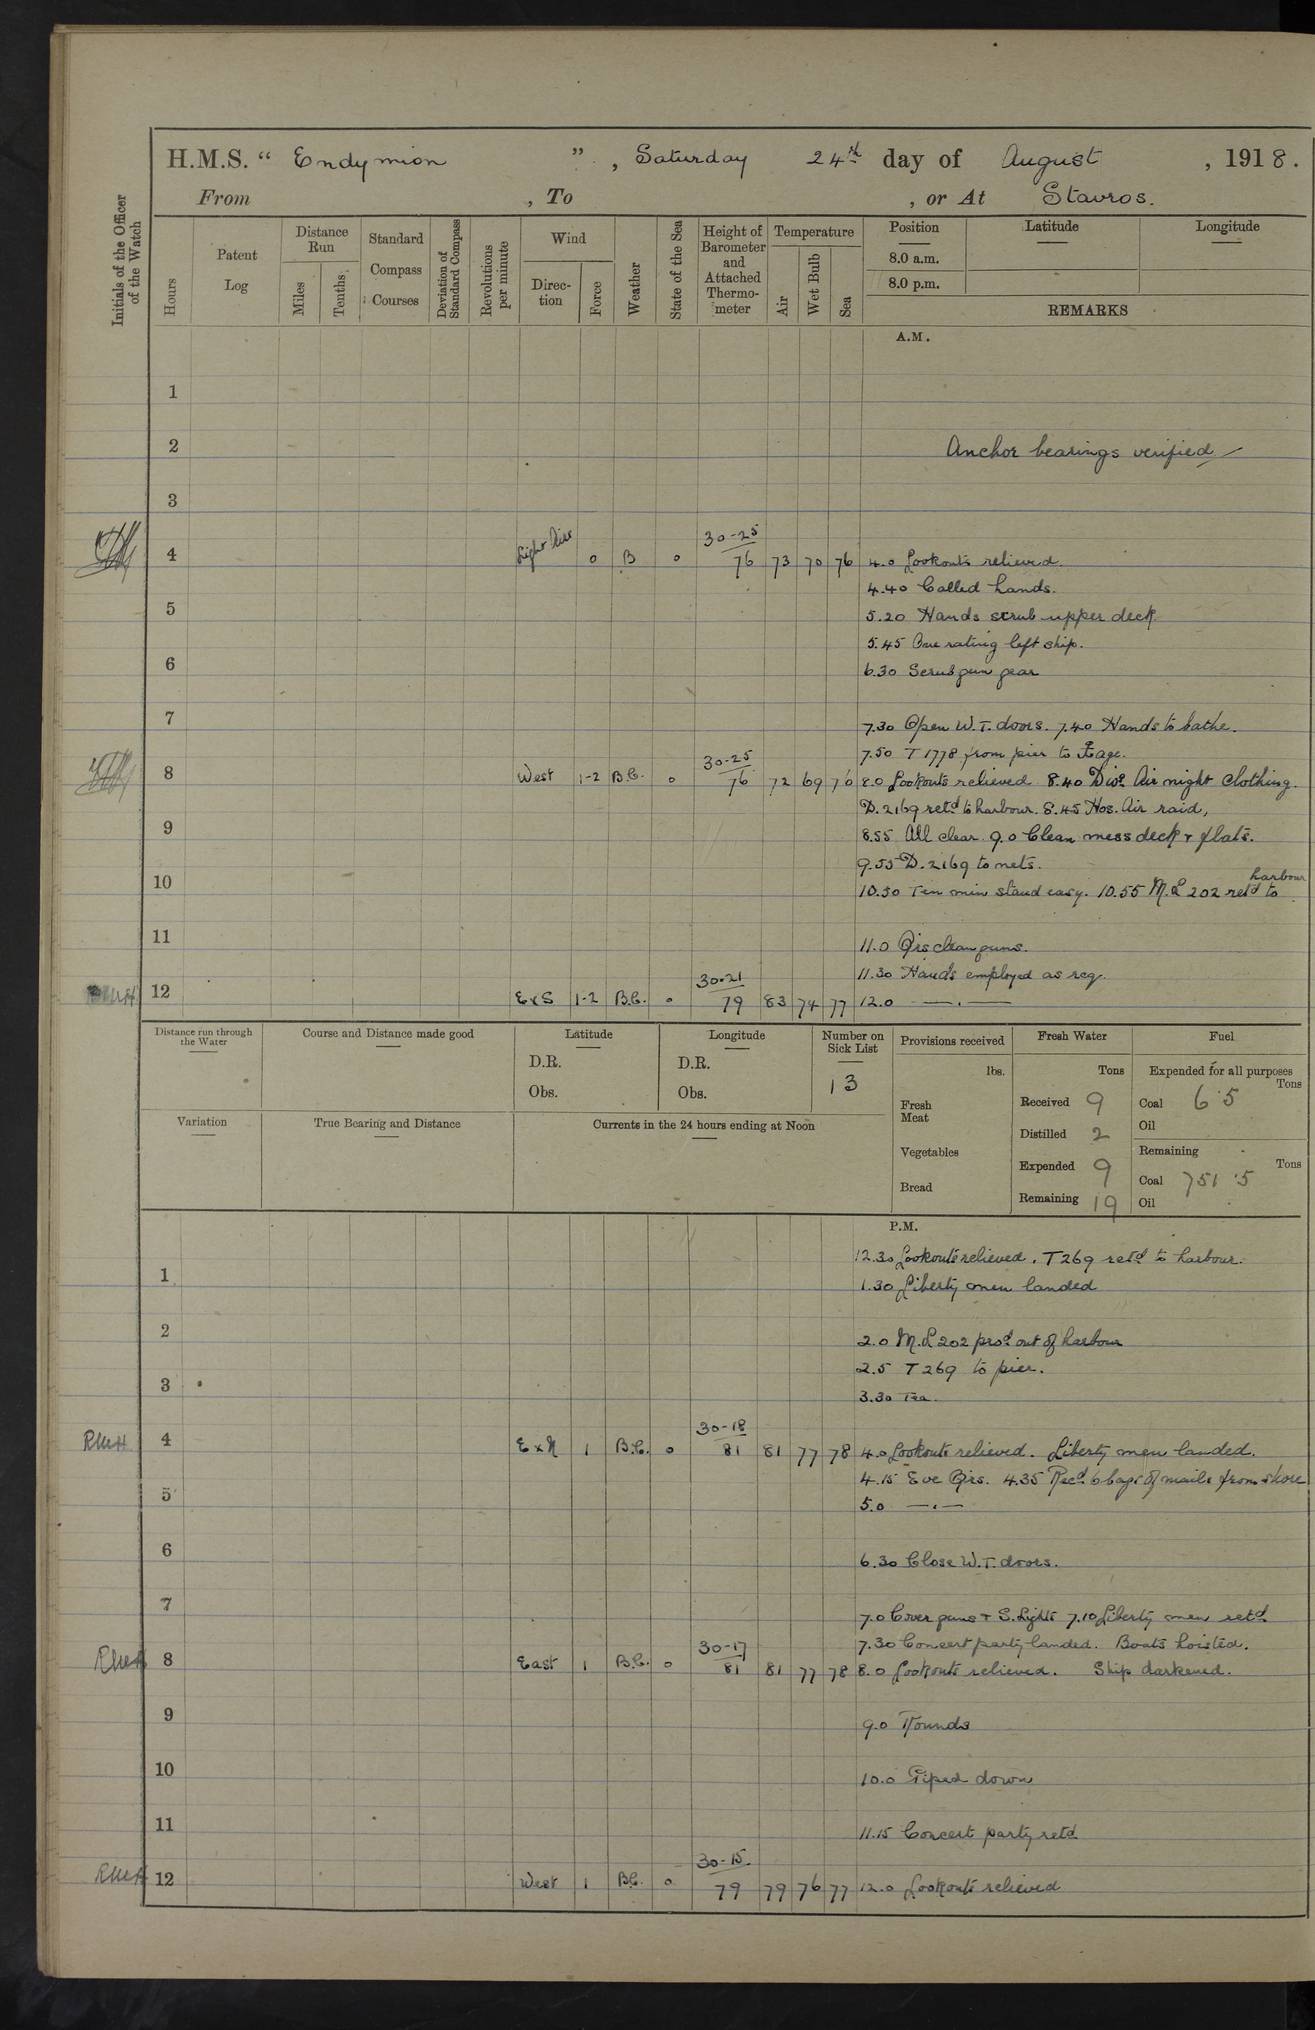 H.M.S. “ Endymion ” , Saturday 24th day of August , 1918.
From , To , or At Stavros.
Initials of the Officer of the Watch
Hours
Patent Log
Distance Run
Miles
Tenths
Standard Compass Courses
Deviation of Standard Compass
Revolutions per minute
Wind
Direction
Force
Weather
State of the Sea
Height of Barometer and Attached Thermometer
Temperature
Air
Wet Bulb
Sea
Position
8.0 a.m.
8.0 p.m.
Latitude
Longitude
REMARKS
A.M.
1
2 Anchor bearings verified
3
30-25
4 Light Airs 0 B 0 76 73 70 76 4.0 Lookouts relieved.
4.40 Called hands.
5 5.20 Hands scrub upper deck
5.45 One rating left ship.
6 6.30 Scrub gun gear
7 7.30 Open W.T. doors. 7.40 Hands to bathe.
30-25 7.50 T 1778 from pier to
8 West 1-2 B.C. 0 76 72 69 76 8.0 Lookouts relieved 8.40 Divs. Air night clothing.
D. 2169 retd to harbour. 8.45 Hos. Air raid,
9 8.55 All clear. 9.0 Clean mess deck & flats.
9.55 D. 2169 to nets.
harbour
10 10.50 Ten min stand easy. 10.55 M.L 202 retd to
11 11.0 Qrs clean guns.
30-21 11.30 Hands employed as req.
12 ExS 1-2 B.C. 0 79 83 74 77 12.0 — . —
Distance run through the Water
Course and Distance made good
Latitude
D.R.
Obs.
Longitude
D.R.
Obs.
Number on Sick List
13
Provisions received
lbs.
Fresh Meat
Vegetables
Bread
Fresh Water
Tons
Received 9
Distilled 2
Expended 9
Remaining 19
Fuel
Expended for all purposes
Tons
Coal 6.5
Oil
Remaining
Tons
Coal 751.5
Oil
Variation
True Bearing and Distance
Currents in the 24 hours ending at Noon
P.M.
12.30 Lookouts relieved. T 269 retd to harbour.
1 1.30 Liberty men landed
2 2.0 M.L 202 procd out of harbour
2.5 T 269 to pier.
3 3.30 Tea.
30-18
RMH 4 ExN 1 B.C. 0 81 81 77 78 4.0 Lookouts relieved. Liberty men landed.
4.15 Eve Qrs. 4.35 Recd 6 bags of mails from shore
5 5.0 — . —
6 6.30 Close W.T. doors.
7 7.0 Cover guns & S.Lights 7.10 Liberty men retd
30-17 7.30 Concert party landed. Boats hoisted.
RMH 8 East 1 B.C. 0 81 81 77 78 8.0 Lookouts relieved. Ship darkened.
9 9.0 Rounds
10 10.0 Piped down
11 11.15 Concert party retd
30-15
RMH 12 West 1 B.C. 0 79 79 76 77 12.0 Lookouts relieved